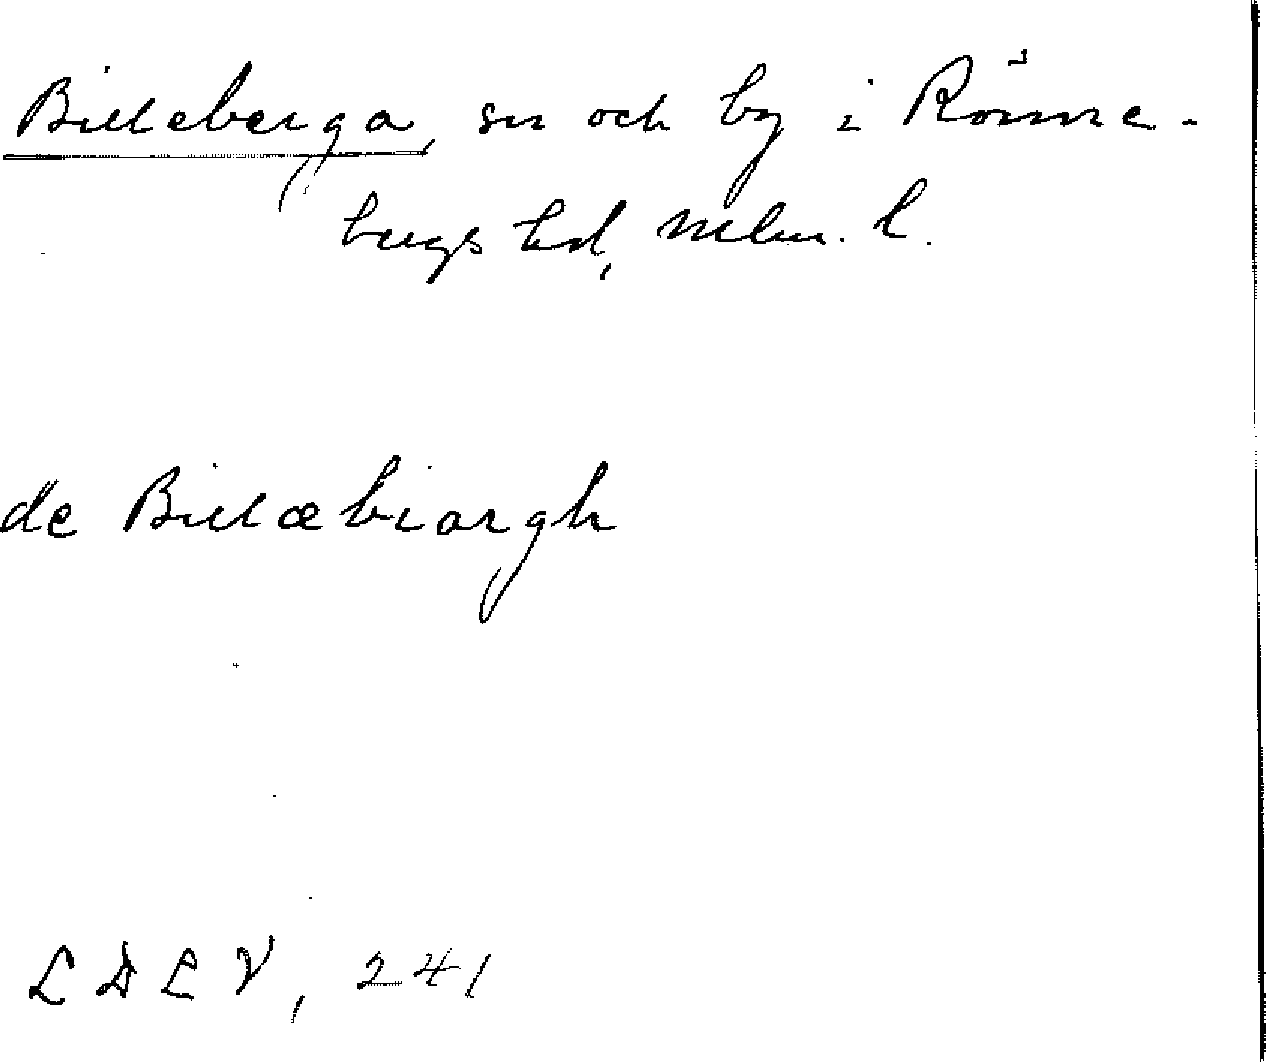 Billeberga, sn och by i Rönne-
bergs hd, Mlm. l.
de Billæbiargh
LDL V, 241